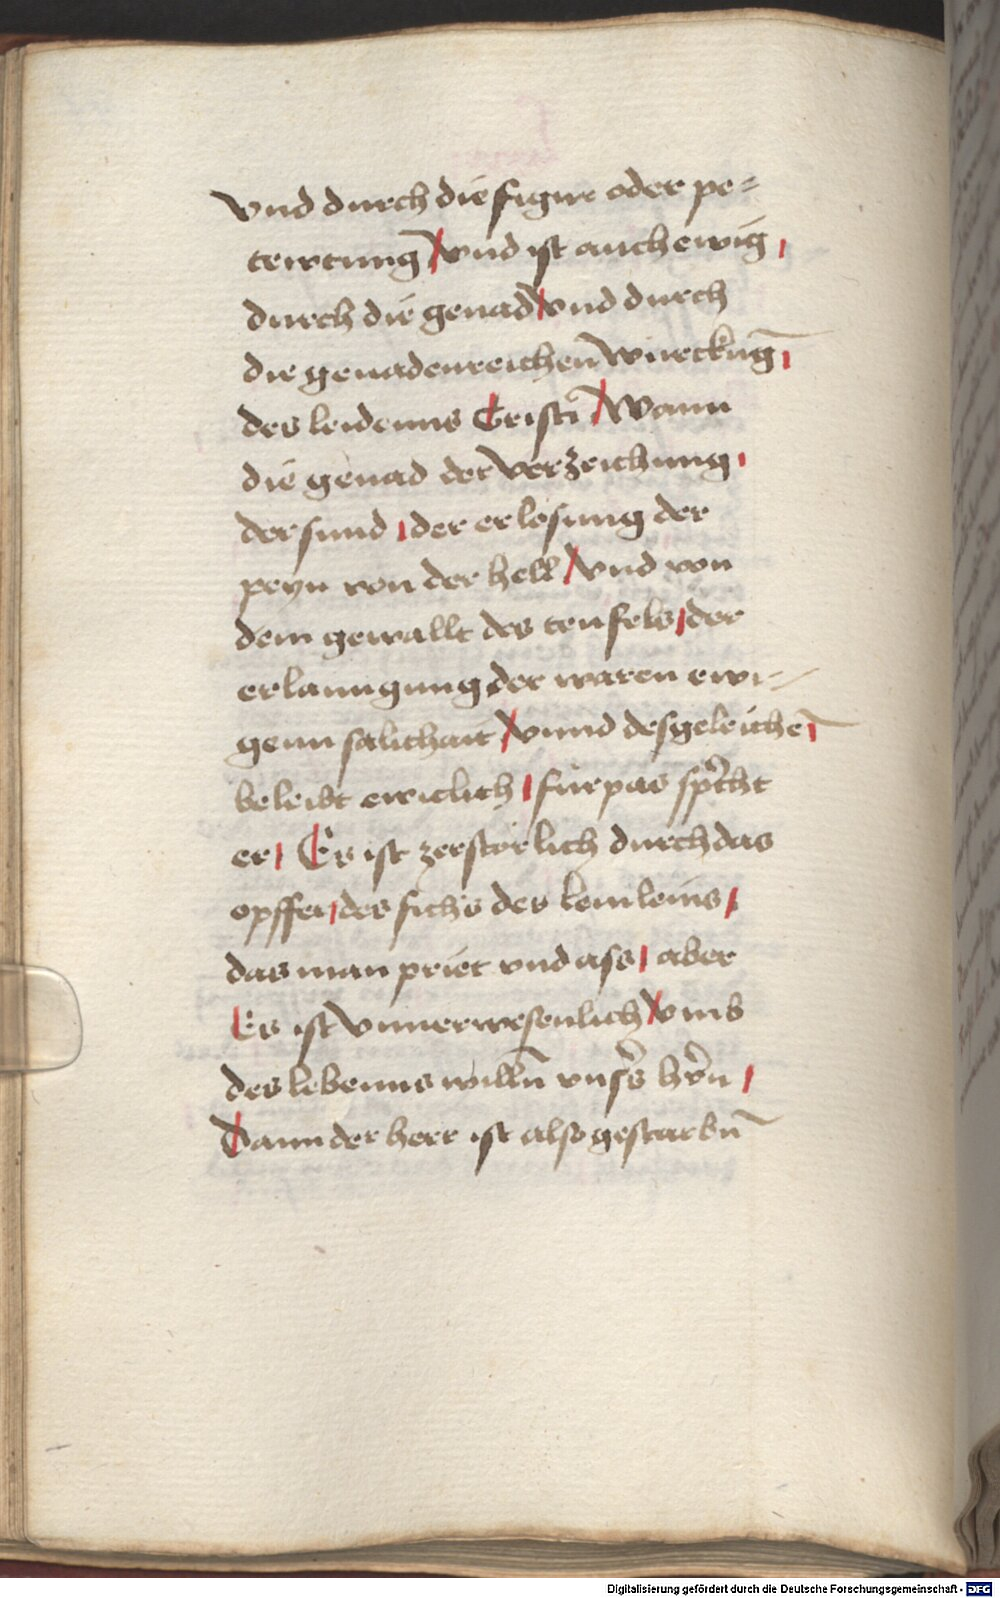 vnd durch die figur oder pe=
tewtung vnd ist auch ewig
durch die genad vnd durch
die genadenreichen würckūg
des leidenns Cristi Wann
die genad der verzeichung
der sund der erlosung der
peyn von der hell vnd von
dem gewallt des teufels der
erlanngung der waren ewi=
genn salichait vnnd desgeleichē
beleibt ewiclich fürpas spricht
er Es ist zerstörlich durch das
opffer des fichs des lemleins
das man priet vnd ass aber
Es ist vnnerwesenlich vmb
des lebenns willn̄ vnsers hern
Dann der herr ist also gestarbn̄
Digitalisierung gefördert durch die Deutsche Forschungsgemeinschaft - DFG